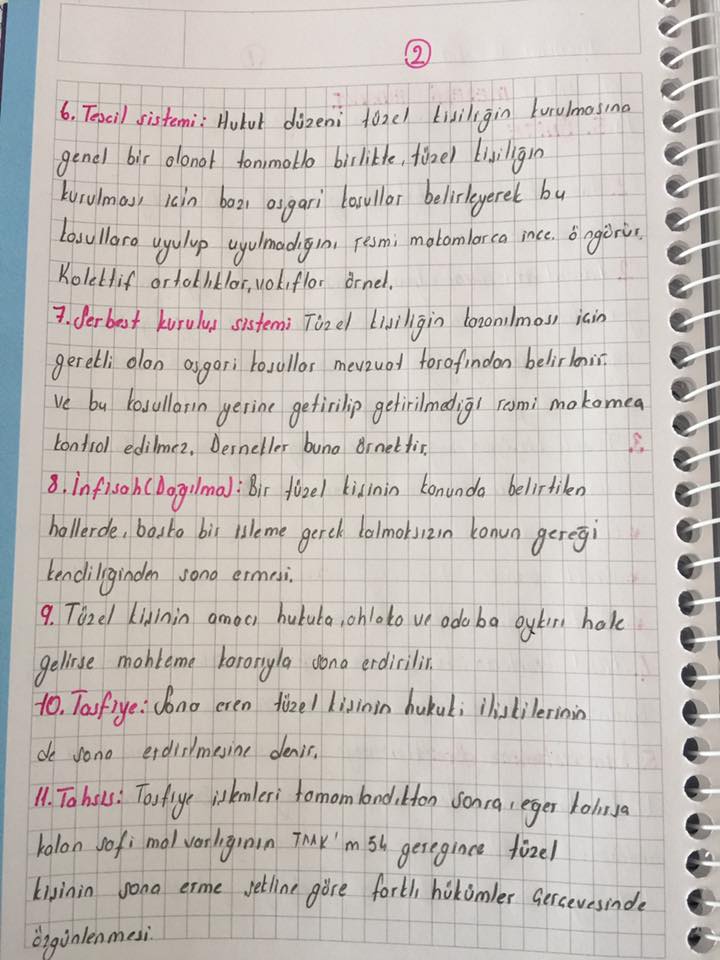 2
6. Tescil sistemi: Hukuk düzeni tüzel kişiliğin kurulmasına
genel bir olanak tanımakla birlikte, tüzel kişiliğin
kurulması için bazı asgari koşullar belirleyerek bu
koşullara uyulup uyulmadığını resmi makamlarca ince. öngörür.
Kolektif ortaklıklar, vakıflar örnek.
7. Serbest kuruluş sistemi Tüzel kişiliğin kazanılması için
gerekli olan asgari koşullar mevzuat tarafından belirlenir.
ve bu koşulların yerine getirilip getirilmediği resmi makamca
kontrol edilmez. Dernekler buna örnektir.
8. İnfisah (Dağılma): Bir tüzel kişinin kanunda belirtilen
hallerde, başka bir işleme gerek kalmaksızın kanun gereği
kendiliğinden sona ermesi.
9. Tüzel kişinin amacı hukuka, ahlaka ve adaba aykırı hale
gelirse mahkeme kararıyla sona erdirilir.
10. Tasfiye: Sona eren tüzel kişinin hukuki ilişkilerinin
de sona erdirilmesine denir.
11. Tahsis: Tasfiye işlemleri tamamlandıktan sonra, eğer kalırsa
kalan safi mal varlığının TMK'm 54 gereğince tüzel
kişinin sona erme şekline göre farklı hükümler çerçevesinde
özgünlenmesi.